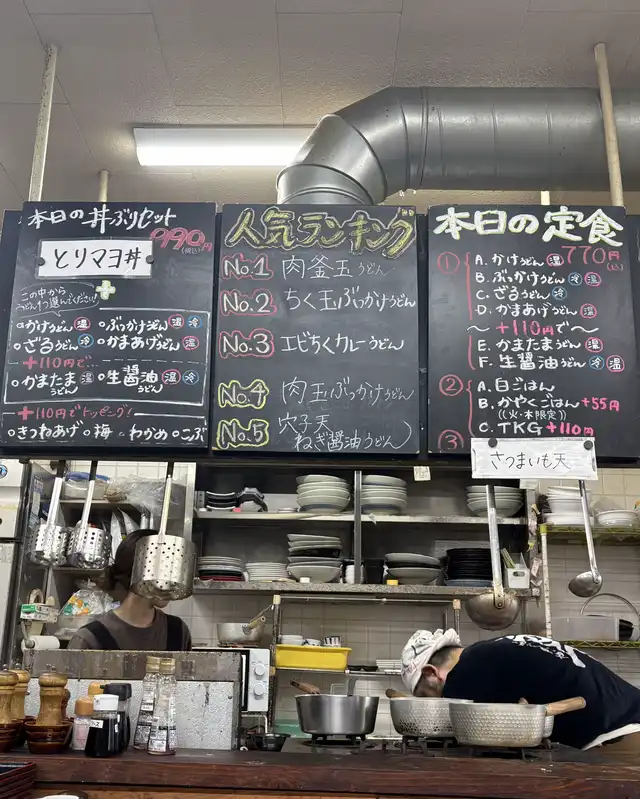 本日の丼ぶりセット
990円
(税込)
とりマヨ丼
この中から
うどん1つ選んでください!
+
○かけうどん 温 ○ぶっかけうどん 温 冷
○ざるうどん 冷 ○かまあげうどん 温
+110円で…
○かまたまうどん 温 ○生醤油うどん 温 冷
+110円でトッピング!
○きつねあげ ○梅 ○わかめ ○こぶ
人気ランキング
No.1 肉釜玉うどん
No.2 ちく玉ぶっかけうどん
No.3 エビちくカレーうどん
No.4 肉玉ぶっかけうどん
No.5 穴子天
ねぎ醤油うどん
本日の定食
① A. かけうどん 温 770円
(込)
B. ぶっかけうどん 温 冷
C. ざるうどん 冷
D. かまあげうどん 温
〜+110円で〜
E. かまたまうどん 温
F. 生醤油うどん 冷 温
② A. 白ごはん
B. かやくごはん +55円
((火・木限定))
C. TKG +110円
③ さつまいも天